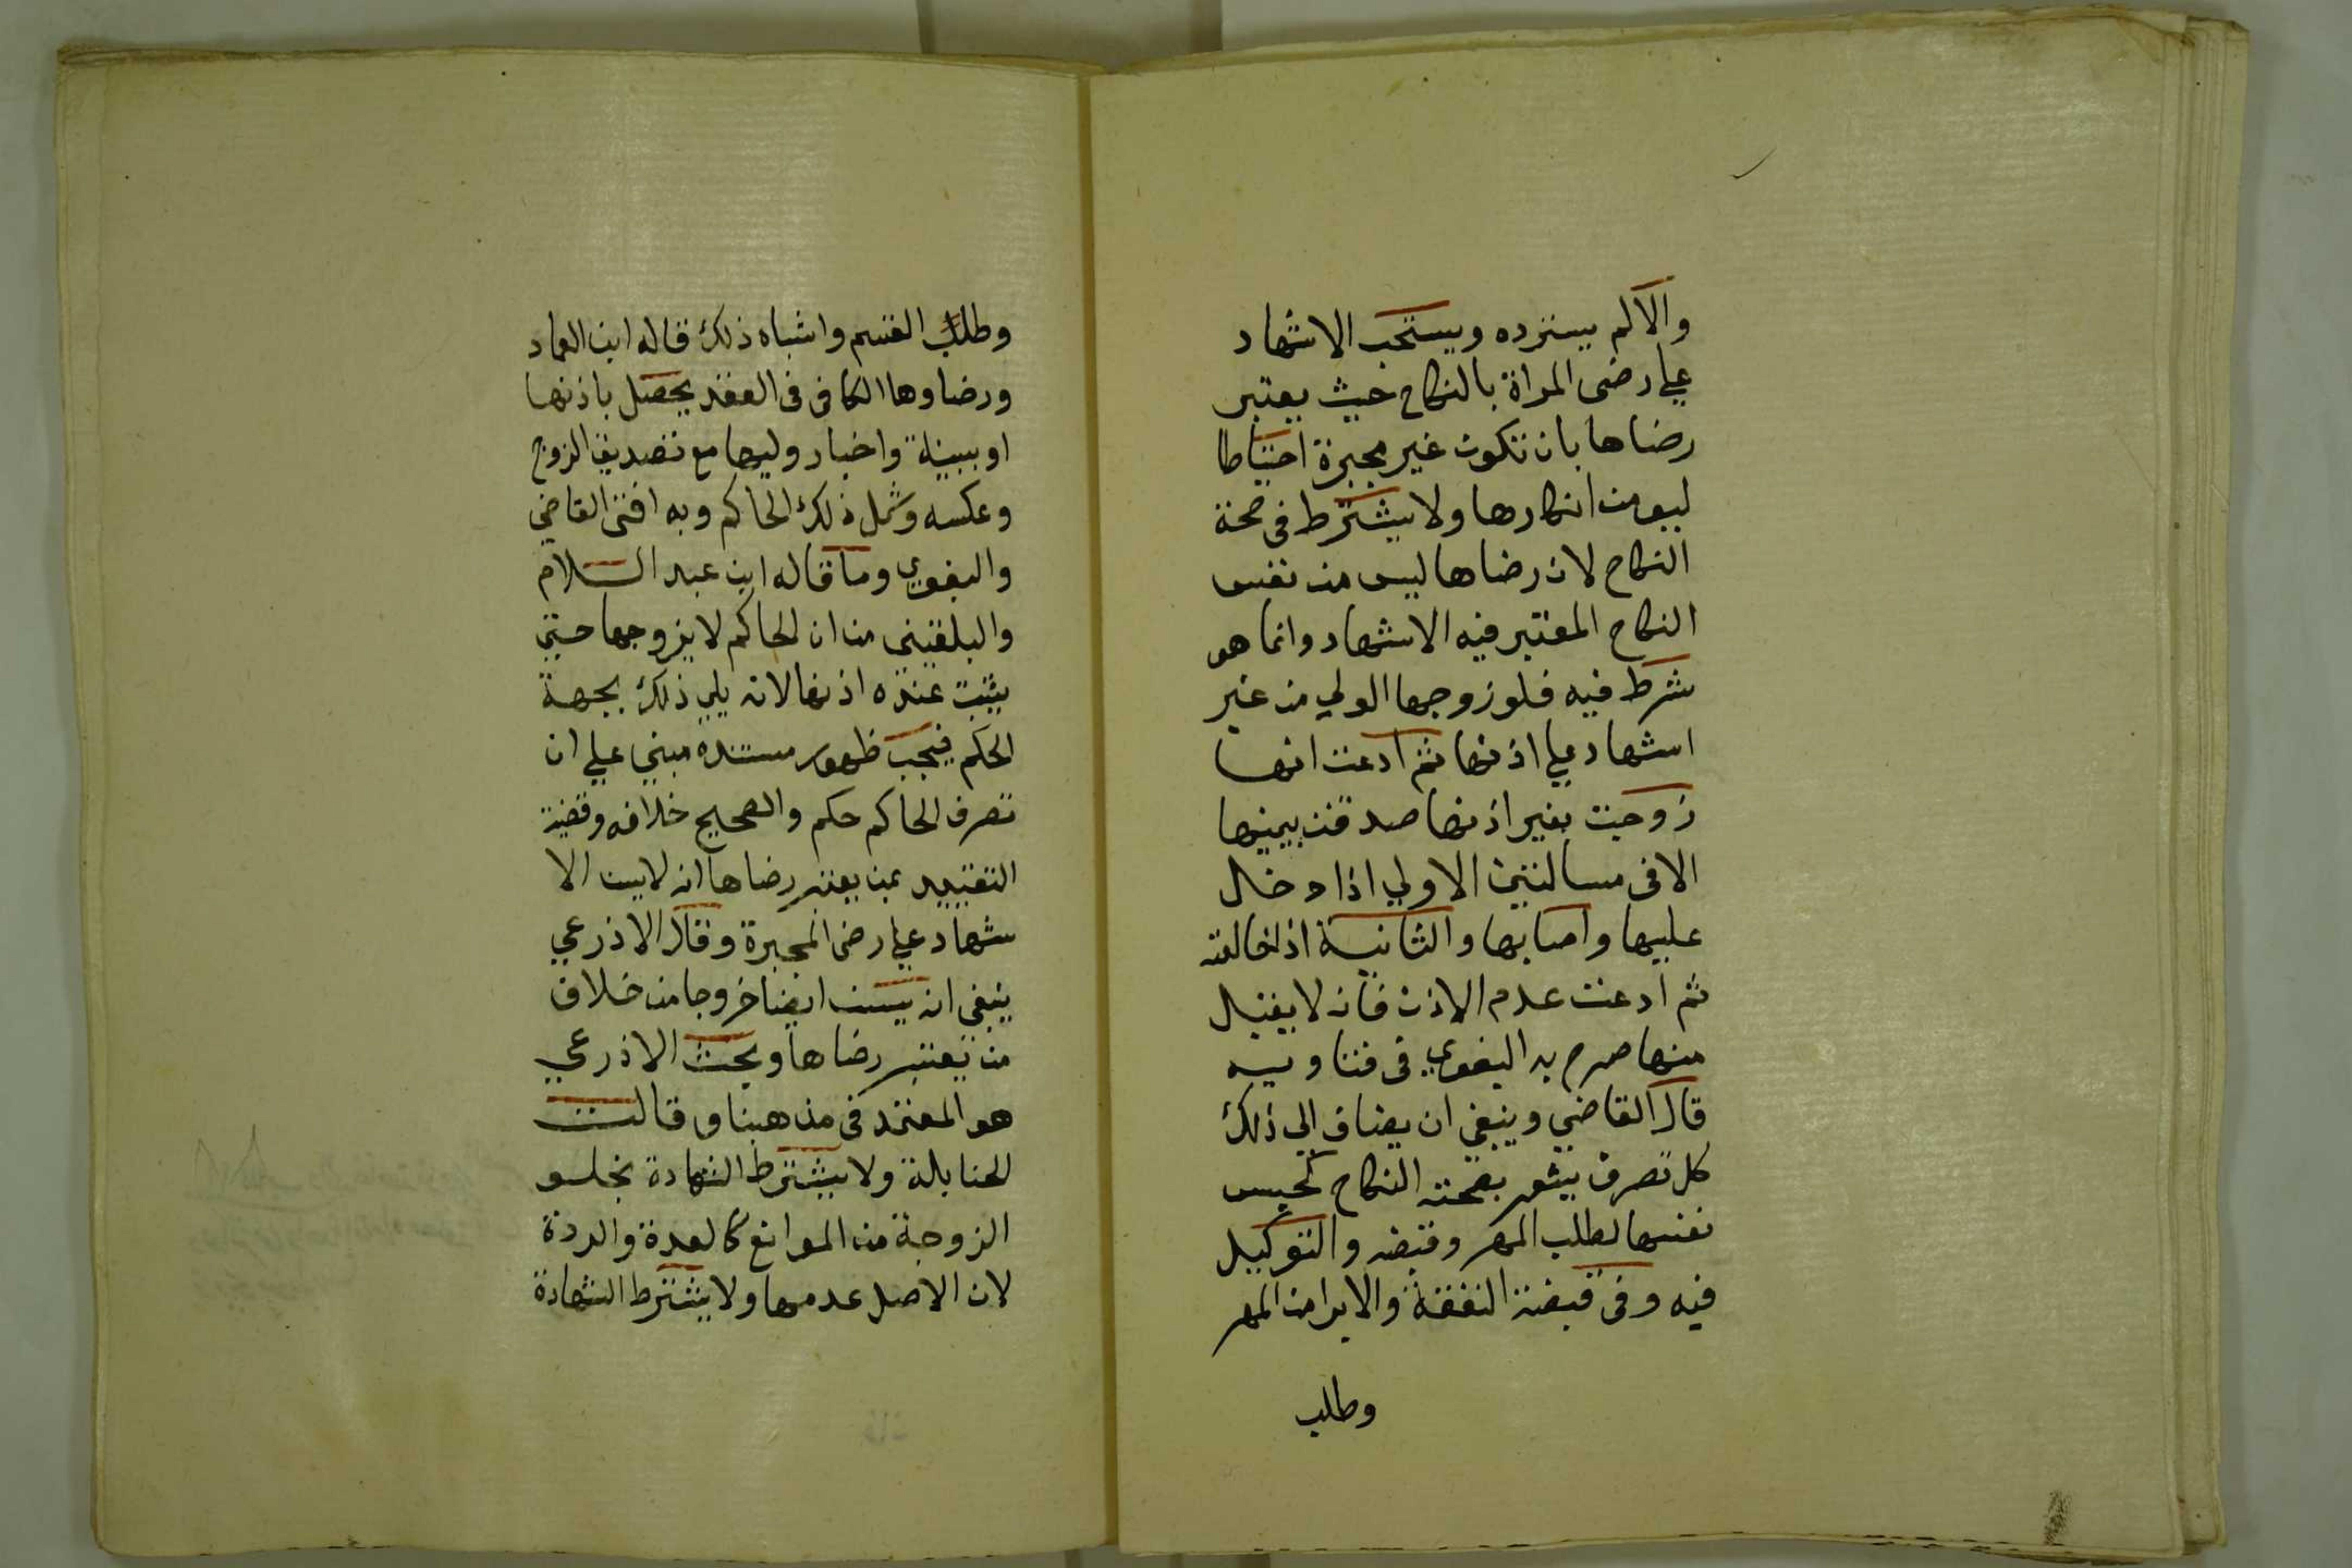 والا لم يسترده ويستحب الاشهاد
علي رضى المراة بالنكاح حيث يعتبر
رضاها بان تكون غير مجبرة احتياطا
ليومن انكارها ولا يشترط في صحة
النكاح لان رضاها ليس من نفس
النكاح المعتبر فيه الاشهاد وانما هو
شرط فيه فلو زوجها الولي من غير
اشهاد علي اذنها ثم ادعت انها
زوجت بغير اذنها صدقت بيمينها
الا في مسالتين الاولي اذا دخل
عليها واصابها والثانية اذا خالعته
ثم ادعت عدم الاذن فانه لا يقبل
منها صرح به البغوي في فتاويه
قال القاضي وينبغي ان يضاف الي ذلك
كل تصرف يشعر بصحته النكاح كحبس
نفسها لطلب المهر وقبضه والتوكيل
فيه وفي قبضة النفقة والابرا من المهر
وطلب
وطلب القسم واشباه ذلك قاله ابن العماد
ورضاوها الكافي في العقد يحصل باذنها
او ببينة واخبار وليها مع تصديق الزوج
وعكسه وشمل ذلك الحاكم وبه افتى القاضي
والبغوي وما قاله ابن عبد السلام
والبلقيني من ان الحاكم لا يزوجها حتى
يثبت عنده اذنها لانه يلي ذلك بجهة
الحكم فيجب ظهور مستنده مبني علي ان
تصرف الحاكم حكم والصحيح خلافه وقضية
التقييد بمن يعتبر رضاها انه لا يسن الا
شهاد علي رضى المجبرة وقال الاذرعي
ينبغي انه يسن ايضا خروجا من خلاف
من يعتبر رضاها وبحث الاذرعي
هو المعتمد في مذهبنا وقالت
الحنابلة ولا يشترط الشهادة بخلو
الزوجة من الموانع كالعدة والردة
لان الاصل عدمها ولا يشترط الشهادة